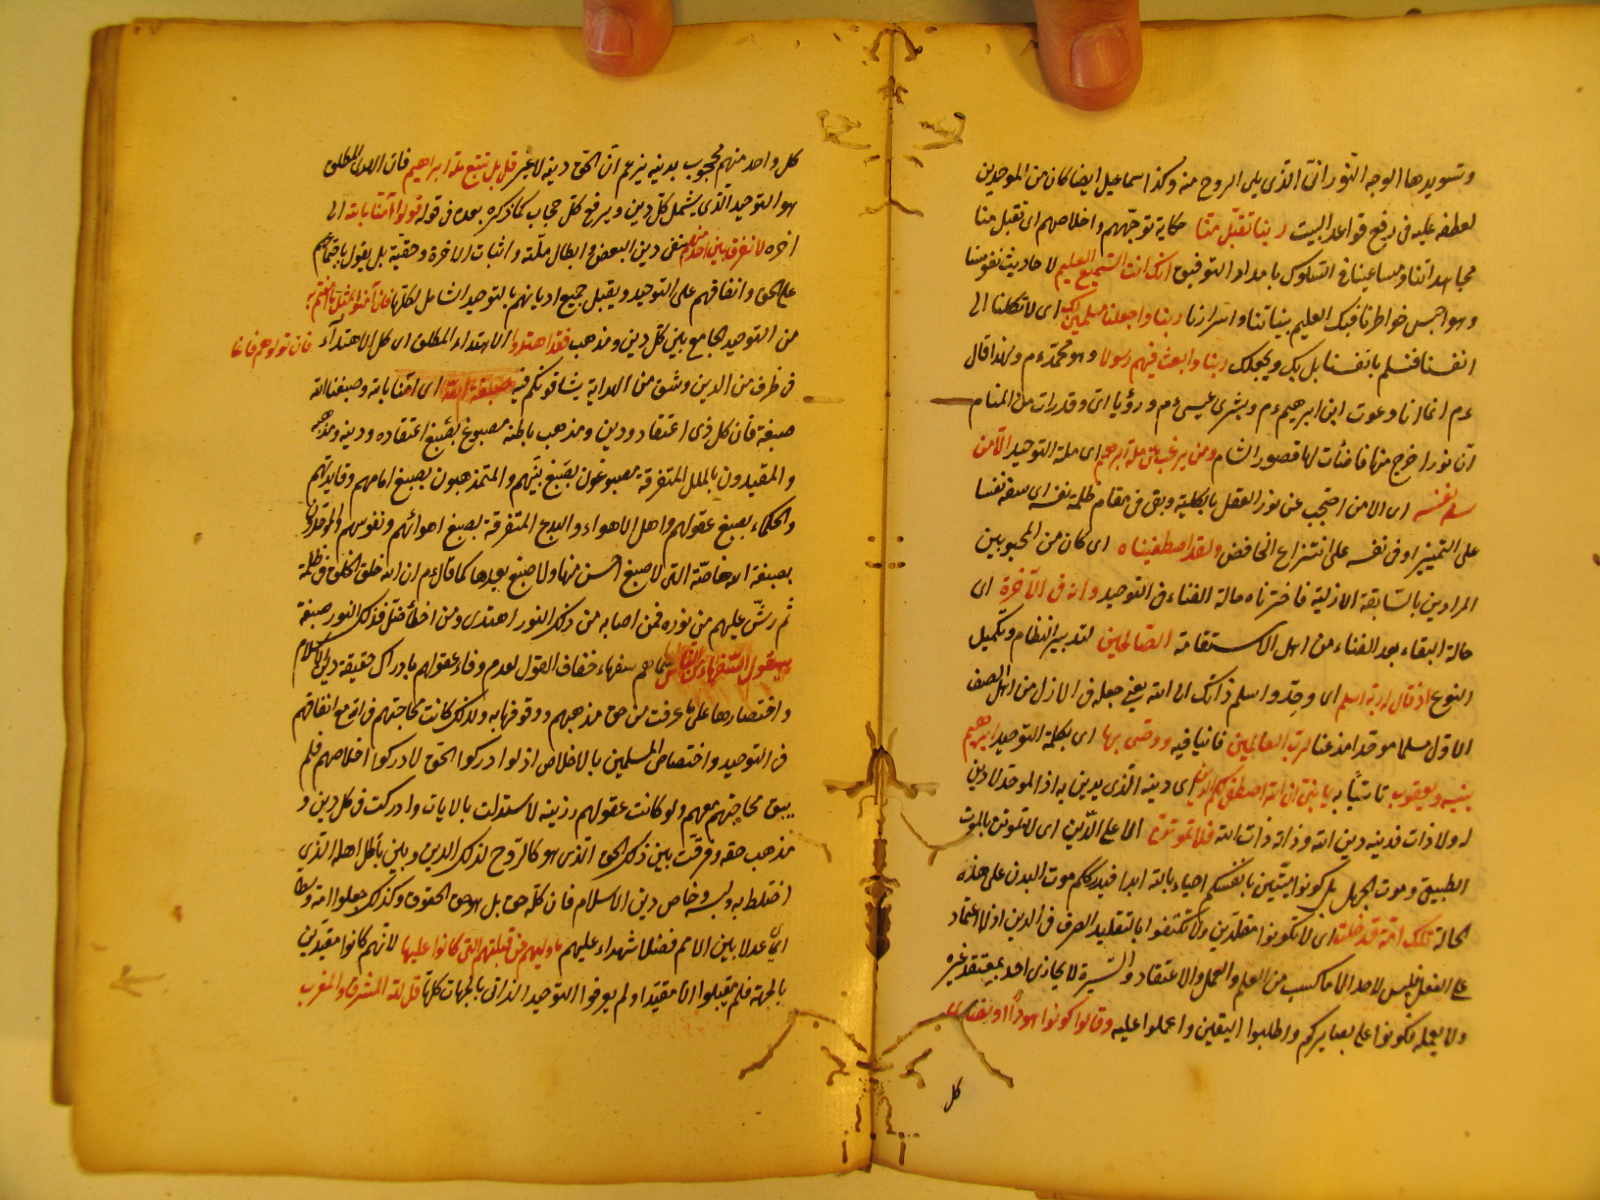 وتسويدها الوجه النوراني الذي يلي الروح منه وكذا اسماعيل ايضا كان من الموحدين
لعطفه عليه في رفع قواعد البيت ربنا تقبل منا حكاية توجههم واخلاصهم اي تقبل منا
مجاهداتنا ومساعينا في السلوك بامداد التوفيق انك انت السميع العليم لاحاديث نفوسنا
وهواجس خواطرنا فيك العليم بنياتنا واسرارنا ربنا واجعلنا مسلمين لك اي لا تكلنا الى
انفسنا فنسلم بانفسنا بل بك وبجعلك ربنا وابعث فيهم رسولا وهو محمد عم ولهذا قال
عم انما انا دعوت ابي ابرهيم عم وبشرى عيسى عم ورؤيا امي وقد رات من المنام
ان نورا خرج منها فاضأت لها قصور الشام ومن يرغب عن ملة ابرهيم اي ملة التوحيد الا من
سفه نفسه اي الا من احتجب عن نور العقل بالكلية وبقي في مقام ظلمة نفسه اي سفه نفسا
على التمييز او في نفسه على انتزاع الخافض ولقد اصطفيناه اي كان من المحبوبين
المرادين بالسابقة الازلية فاخترناه حالة الفناء في التوحيد وانه في الآخرة اي
حالة البقاء بعد الفناء من اهل الاستقامة الصالحين لتدبير النظام وتكميل
النوع اذ قال له ربه اسلم اي وحد واسلم ذاتك الى الله يعني جعله في الازل من اهل الصف
الاول مسلما موحدا مذعنا لرب العالمين فانيا فيه ووصى بها اي بكلمة التوحيد ابرهيم
بنيه ويعقوب تأسيا به يا بني ان الله اصطفى لكم الدين اي دينه الذي يدين به اذ الموحد لا دين
له ولا ذات فدينه دين الله وذاته ذات الله فلا تموتن الا على الدين اي لا تموتن بالموت
الطبيعي وموت الجهل بل كونوا ميتين بانفسكم احياء بالله ابدا فيدرككم موت البدن على هذه
الحالة تلك امة قد خلت اي لا تكونوا مقلدين ولا تكتفوا بالتقليد الصرف في الدين اذ لا اعتماد
على النقل فليس لاحد الا ما كسب من العلم والعمل والاعتقاد والسيرة لا يجازى احد بمعتقد غيره
ولا بعمله فكونوا على بصايركم واطلبوا اليقين واعملوا عليه وقالوا كونوا هودا او نصارى
كل
كل واحد منهم محجوب بدينه يزعم ان الحق دينه لا غير قل بل نتبع ملة ابراهيم فان الهدى المطلق
هو التوحيد الذي يشمل كل دين ويرفع كل حجاب كما ذكره بعده في قوله قولوا آمنا بالله الى
اخره لا نفرق بين احد منهم بنفي دين البعض وابطال ملته واثبات الاخرة وحقيته بل يقول باجتماعهم
على الحق واتفاقهم على التوحيد ويقبل جميع اديانهم بالتوحيد الشامل لكلها فان آمنوا بمثل ما آمنتم به
من التوحيد الجامع بين كل دين ومذهب فقد اهتدوا الاهتداء المطلق اي كل الاهتداء فان تولوا هم فانما
في طرف من الدين وشق من الهداية يشاقونكم فيه صبغة الله اي آمنا بالله وصبغنا الله
صبغة فان كل ذي اعتقاد ودين ومذهب باطنه مصبوغ بصبغ اعتقاده ودينه ومذهبه
والمقيدون بالملل المتفرقة مصبوغون بصبغ نبيهم والمتمذهبون بصبغ امامهم وقايدهم
والحكماء بصبغ عقولهم واهل الاهواء والبدع المتفرقة بصبغ اهوائهم ونفوسهم والموحدون
بصبغة الله خاصة التي لا صبغ احسن منها ولا صبغ بعدها كما قال عم ان الله خلق الخلق في ظلمة
ثم رش عليهم من نوره فمن اصابه من ذلك النور اهتدى ومن اخطأ ضل فذلك النور صبغة
سيقول السفهاء من الناس سماهم سفهاء خفاف العقول لعدم وفاء عقولهم بادراك حقيقة دين الاسلام
واقتصارها على ما عرفت من حق مذهبهم ووقوفها به ولذلك كانت محاجتهم في الله مع اتفاقهم
في التوحيد واختصاص المسلمين بالاخلاص اذ لو ادركوا الحق لادركوا اخلاصهم فلم
يبق محاجتهم معهم ولو كانت عقولهم رزينة لاستدلت بالايات وادركت في كل دين و
مذهب حقه وفرقت بين ذلك الحق الذي هو كالروح لذلك الدين وبين باطل اهله الذي
اختلط به ولبسه وخاص دين الاسلام فان كله حق بل هو حق الحقوق وكذلك جعلوا امة وسطا
اي عدلا بين الامم فضلا شهداء عليهم ما وليهم عن قبلتهم التي كانوا عليها لانهم كانوا مقيدين
بالجهة فلم يقبلوا الا مقيدا ولم يعرفوا التوحيد الوافي بالجهات كلها قل لله المشرق والمغرب